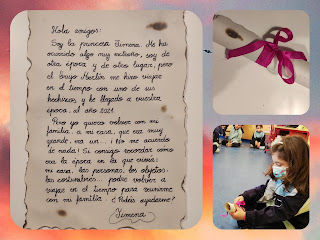 Hola amigos:
Soy la princesa Jimena. Me ha
ocurrido algo muy extraño, soy de
otra época y de otro lugar, pero
el brujo Merlín me hizo viajar
en el tiempo con uno de sus
hechizos y he llegado a vuestra
época, el año 2021.
Pero yo quiero volver con mi
familia, a mi casa, que era muy
grande, era un... ¡No me acuerdo
de nada! Si consigo recordar cómo
era la época en la que vivía:
mi casa, las personas, los objetos,
las costumbres... podré volver a
viajar en el tiempo para reunirme
con mi familia. ¿Podéis ayudarme?
Jimena